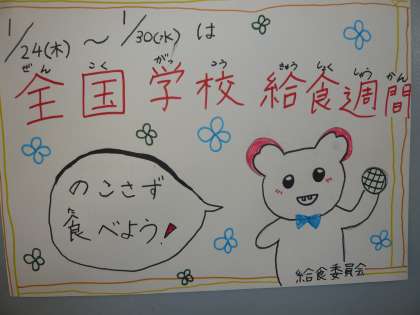 1/24(木)～1/30(水)は
ぜんこくがっこうきゅうしょくしゅうかん
全国学校給食週間
のこさず
食べよう!
た
給食委員会